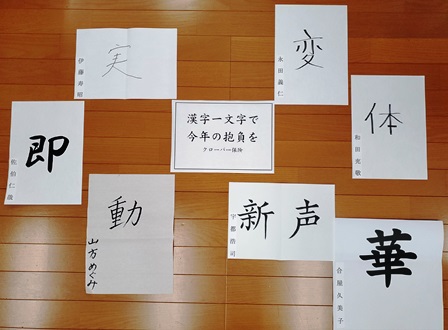 実
伊藤寿昭
変
永田義仁
体
和田克敬
漢字一文字で
今年の抱負を
クローバー保険
即
佐伯仁哉
動
山方めぐみ
新声
宇都浩司
華
合屋久美子